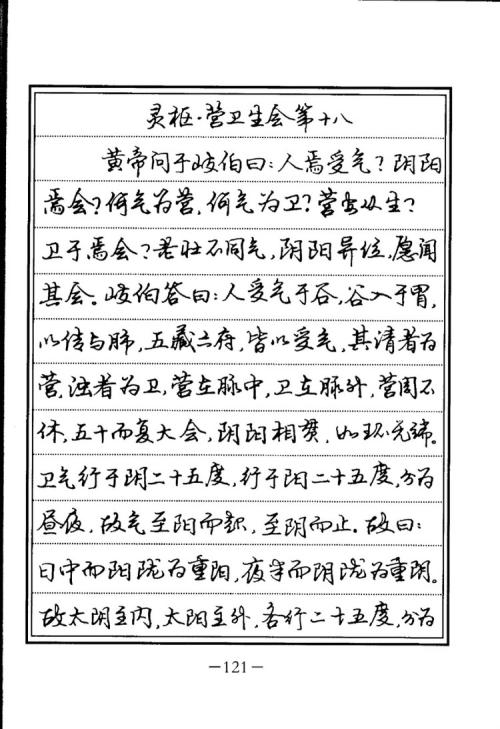 灵枢·营卫生会第十八
黄帝问于岐伯曰：人焉受气？阴阳
焉会？何气为营，何气为卫？营安从生？
卫于焉会？老壮不同气，阴阳异位，愿闻
其会。岐伯答曰：人受气于谷，谷入于胃，
以传与肺，五藏六府，皆以受气，其清者为
营，浊者为卫，营在脉中，卫在脉外，营周不
休，五十而复大会，阴阳相贯，如环无端。
卫气行于阴二十五度，行于阳二十五度，分为
昼夜，故气至阳而起，至阴而止。故曰：
日中而阳陇为重阳，夜半而阴陇为重阴。
故太阴主内，太阳主外，各行二十五度，分为
—121—